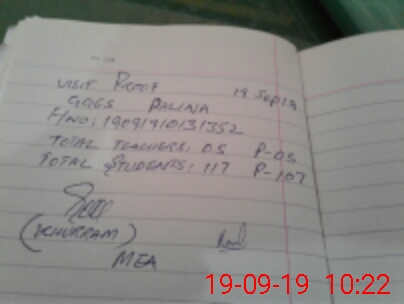 VISIT PROOF 19 Sep 19
GGES PALINA
F/NO: 19091910131352
TOTAL TEACHERS: 05 P-05
TOTAL STUDENTS: 117 P-107
(KHURRAM)
MEA
19-09-19 10:22